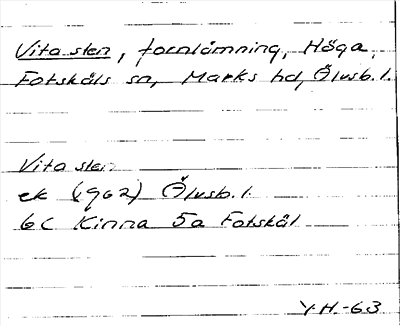 Vita sten, fornlämning, Höga,
Fotskäls sn, Marks hd, Älvsb. l.
Vita sten
ek (1962) Älvsb. l.
6C Kinna 5a Fotskäl
Y.H.-63